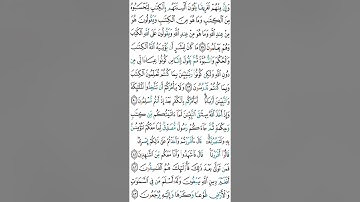 وَإِنَّ مِنْهُمْ لَفَرِيقًا يَلْوُۥنَ أَلْسِنَتَهُم بِٱلْكِتَٰبِ لِتَحْسَبُوهُ
مِنَ ٱلْكِتَٰبِ وَمَا هُوَ مِنَ ٱلْكِتَٰبِ وَيَقُولُونَ هُوَ
مِنْ عِندِ ٱللَّهِ وَمَا هُوَ مِنْ عِندِ ٱللَّهِ وَيَقُولُونَ عَلَى ٱللَّهِ ٱلْكَذِبَ
وَهُمْ يَعْلَمُونَ ٧٨ مَا كَانَ لِبَشَرٍ أَن يُؤْتِيَهُ ٱللَّهُ ٱلْكِتَٰبَ
وَٱلْحُكْمَ وَٱلنُّبُوَّةَ ثُمَّ يَقُولَ لِلنَّاسِ كُونُوا۟ عِبَادًا لِّى
مِن دُونِ ٱللَّهِ وَلَٰكِن كُونُوا۟ رَبَّٰنِيِّـۧنَ بِمَا كُنتُمْ تُعَلِّمُونَ ٱلْكِتَٰبَ
وَبِمَا كُنتُمْ تَدْرُسُونَ ٧٩ وَلَا يَأْمُرَكُمْ أَن تَتَّخِذُوا۟ ٱلْمَلَٰٓئِكَةَ
وَٱلنَّبِيِّـۧنَ أَرْبَابًا أَيَأْمُرُكُم بِٱلْكُفْرِ بَعْدَ إِذْ أَنتُم مُّسْلِمُونَ ٨٠
وَإِذْ أَخَذَ ٱللَّهُ مِيثَٰقَ ٱلنَّبِيِّـۧنَ لَمَآ ءَاتَيْتُكُم مِّن كِتَٰبٍ
وَحِكْمَةٍ ثُمَّ جَآءَكُمْ رَسُولٌ مُّصَدِّقٌ لِّمَا مَعَكُمْ لَتُؤْمِنُنَّ
بِهِۦ وَلَتَنصُرُنَّهُۥ قَالَ ءَأَقْرَرْتُمْ وَأَخَذْتُمْ عَلَىٰ ذَٰلِكُمْ إِصْرِى
قَالُوٓا۟ أَقْرَرْنَا قَالَ فَٱشْهَدُوا۟ وَأَنَا۠ مَعَكُم مِّنَ ٱلشَّٰهِدِينَ ٨١
فَمَن تَوَلَّىٰ بَعْدَ ذَٰلِكَ فَأُو۟لَٰٓئِكَ هُمُ ٱلْفَٰسِقُونَ ٨٢
أَفَغَيْرَ دِينِ ٱللَّهِ يَبْغُونَ وَلَهُۥٓ أَسْلَمَ مَن فِى ٱلسَّمَٰوَٰتِ
وَٱلْأَرْضِ طَوْعًا وَكَرْهًا وَإِلَيْهِ يُرْجَعُونَ ٨٣